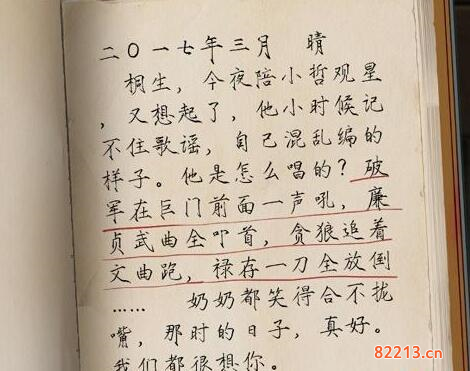 二〇一七年三月 晴
桐生，今夜陪小哲观星
，又想起了，他小时候记
不住歌谣，自己混乱编的
样子。他是怎么唱的？破
军在巨门前面一声吼，廉
贞武曲全叩首，贪狼追着
文曲跑，禄存一刀全放倒
…… 奶奶都笑得合不拢
嘴，那时的日子，真好。
我们都很想你。
82213.cn